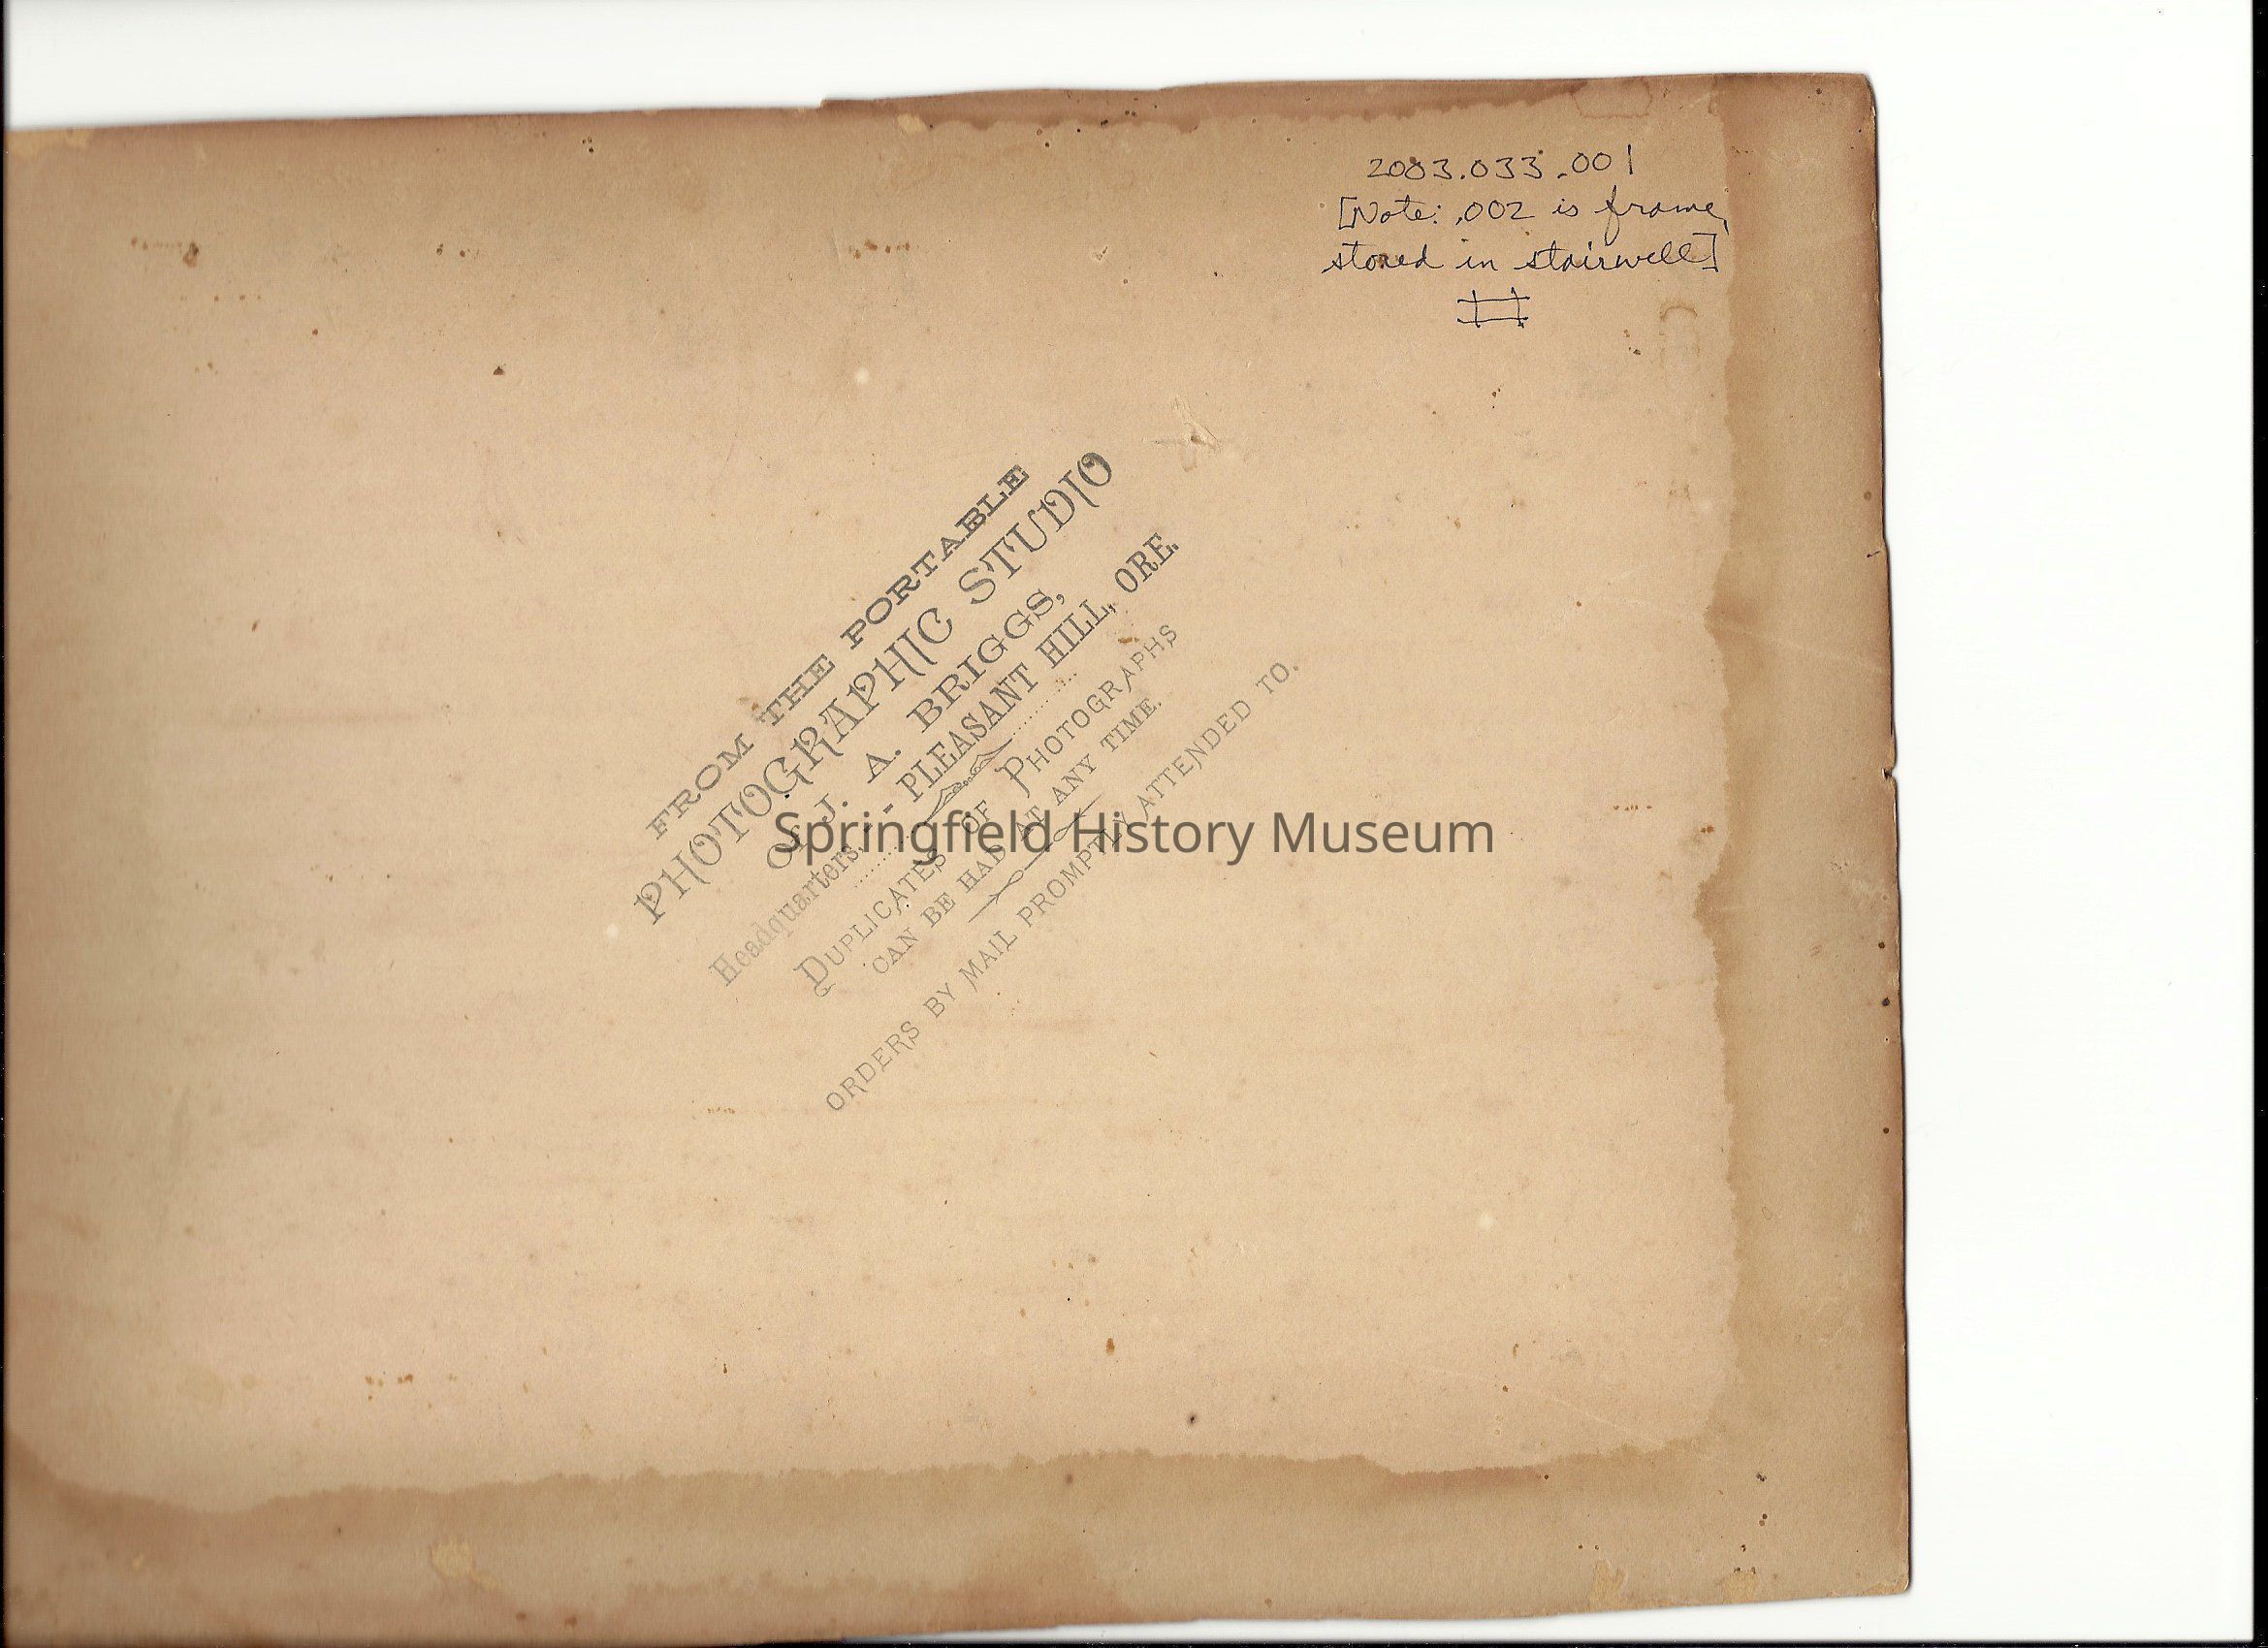 2003.033.001
[Note: .002 is frame,
stored in stairwell]
FROM THE PORTABLE
PHOTOGRAPHIC STUDIO
OF J. A. BRIGGS,
Headquarters, - PLEASANT HILL, ORE.
DUPLICATES OF PHOTOGRAPHS
CAN BE HAD AT ANY TIME.
ORDERS BY MAIL PROMPTLY ATTENDED TO.
Springfield History Museum